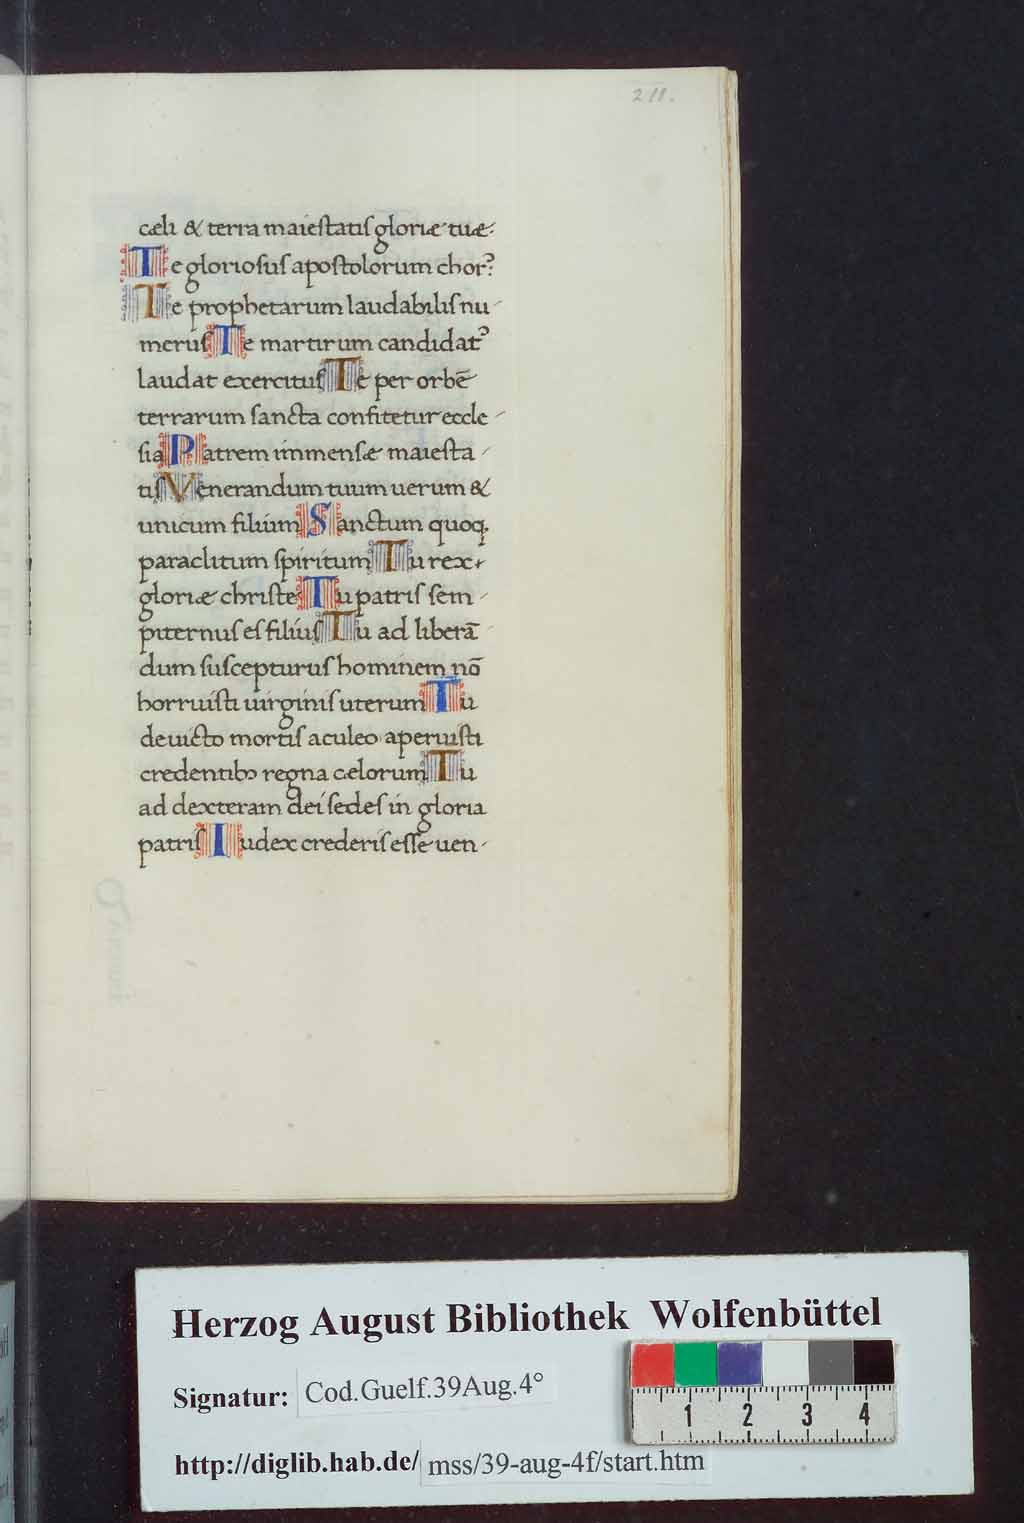 211.
cæli & terra maiestatis gloriæ tuæ.
Te gloriosus apostolorum chorꝰ
Te prophetarum laudabilis nu-
merus Te martirum candidatꝰ
laudat exercitus Te per orbē
terrarum sancta confitetur eccle-
sia Patrem immensæ maiesta-
tis Venerandum tuum uerum &
unicum filium Sanctum quoq;
paraclitum spiritum Tu rex
gloriæ christe Tu patris sem-
piternus es filius Tu ad liberā-
dum suscepturus hominem nō
horruisti uirginis uterum Tu
deuicto mortis aculeo aperuisti
credentibꝫ regna cælorum Tu
ad dexteram dei sedes in gloria
patris Iudex crederis esse uen-
Herzog August Bibliothek Wolfenbüttel
Signatur: Cod.Guelf.39Aug.4°
1 2 3 4
http://diglib.hab.de/ mss/39-aug-4f/start.htm